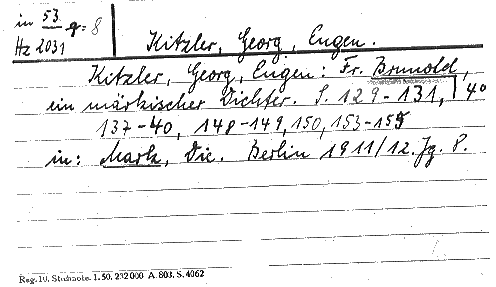 in 53 q: 8
Hz 2031
Kitzler, Georg, Eugen.
Kitzler, Georg, Eugen: Fr. Brunold,
ein märkischer Dichter. S. 129-131, 40
137-40, 148-149, 150, 153-155
in: Mark, Die. Berlin 1911/12. Jg. 8.
Reg. 10. 1. 50. 232000 A. 803. S. 4062